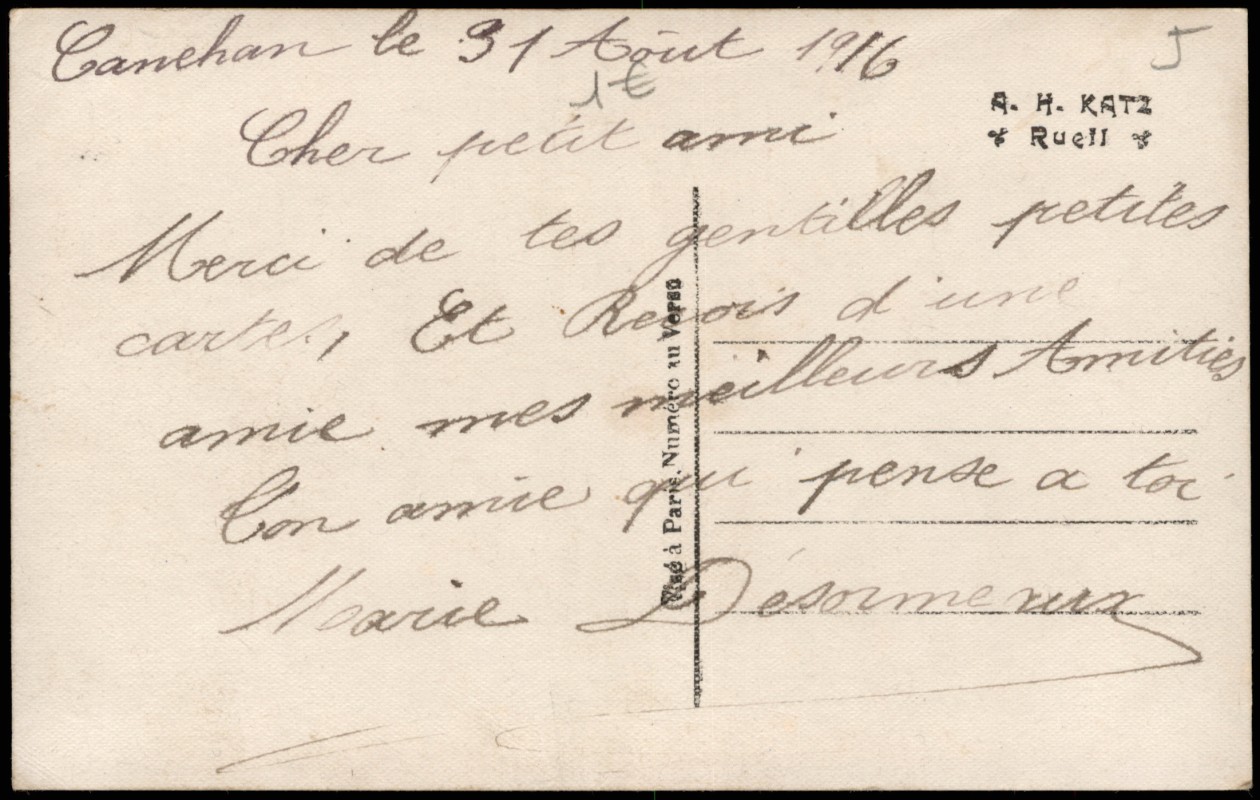 Canehan le 31 Août 1916
J
1€
A. H. KATZ
Ruell
Cher petit ami
Merci de tes gentilles petites
cartes, Et Reçois d'une
amie mes meilleurs Amitiés
Ton amie qui pense a toi
Marie Désormeaux
Visé à Paris. Numéro au Verso